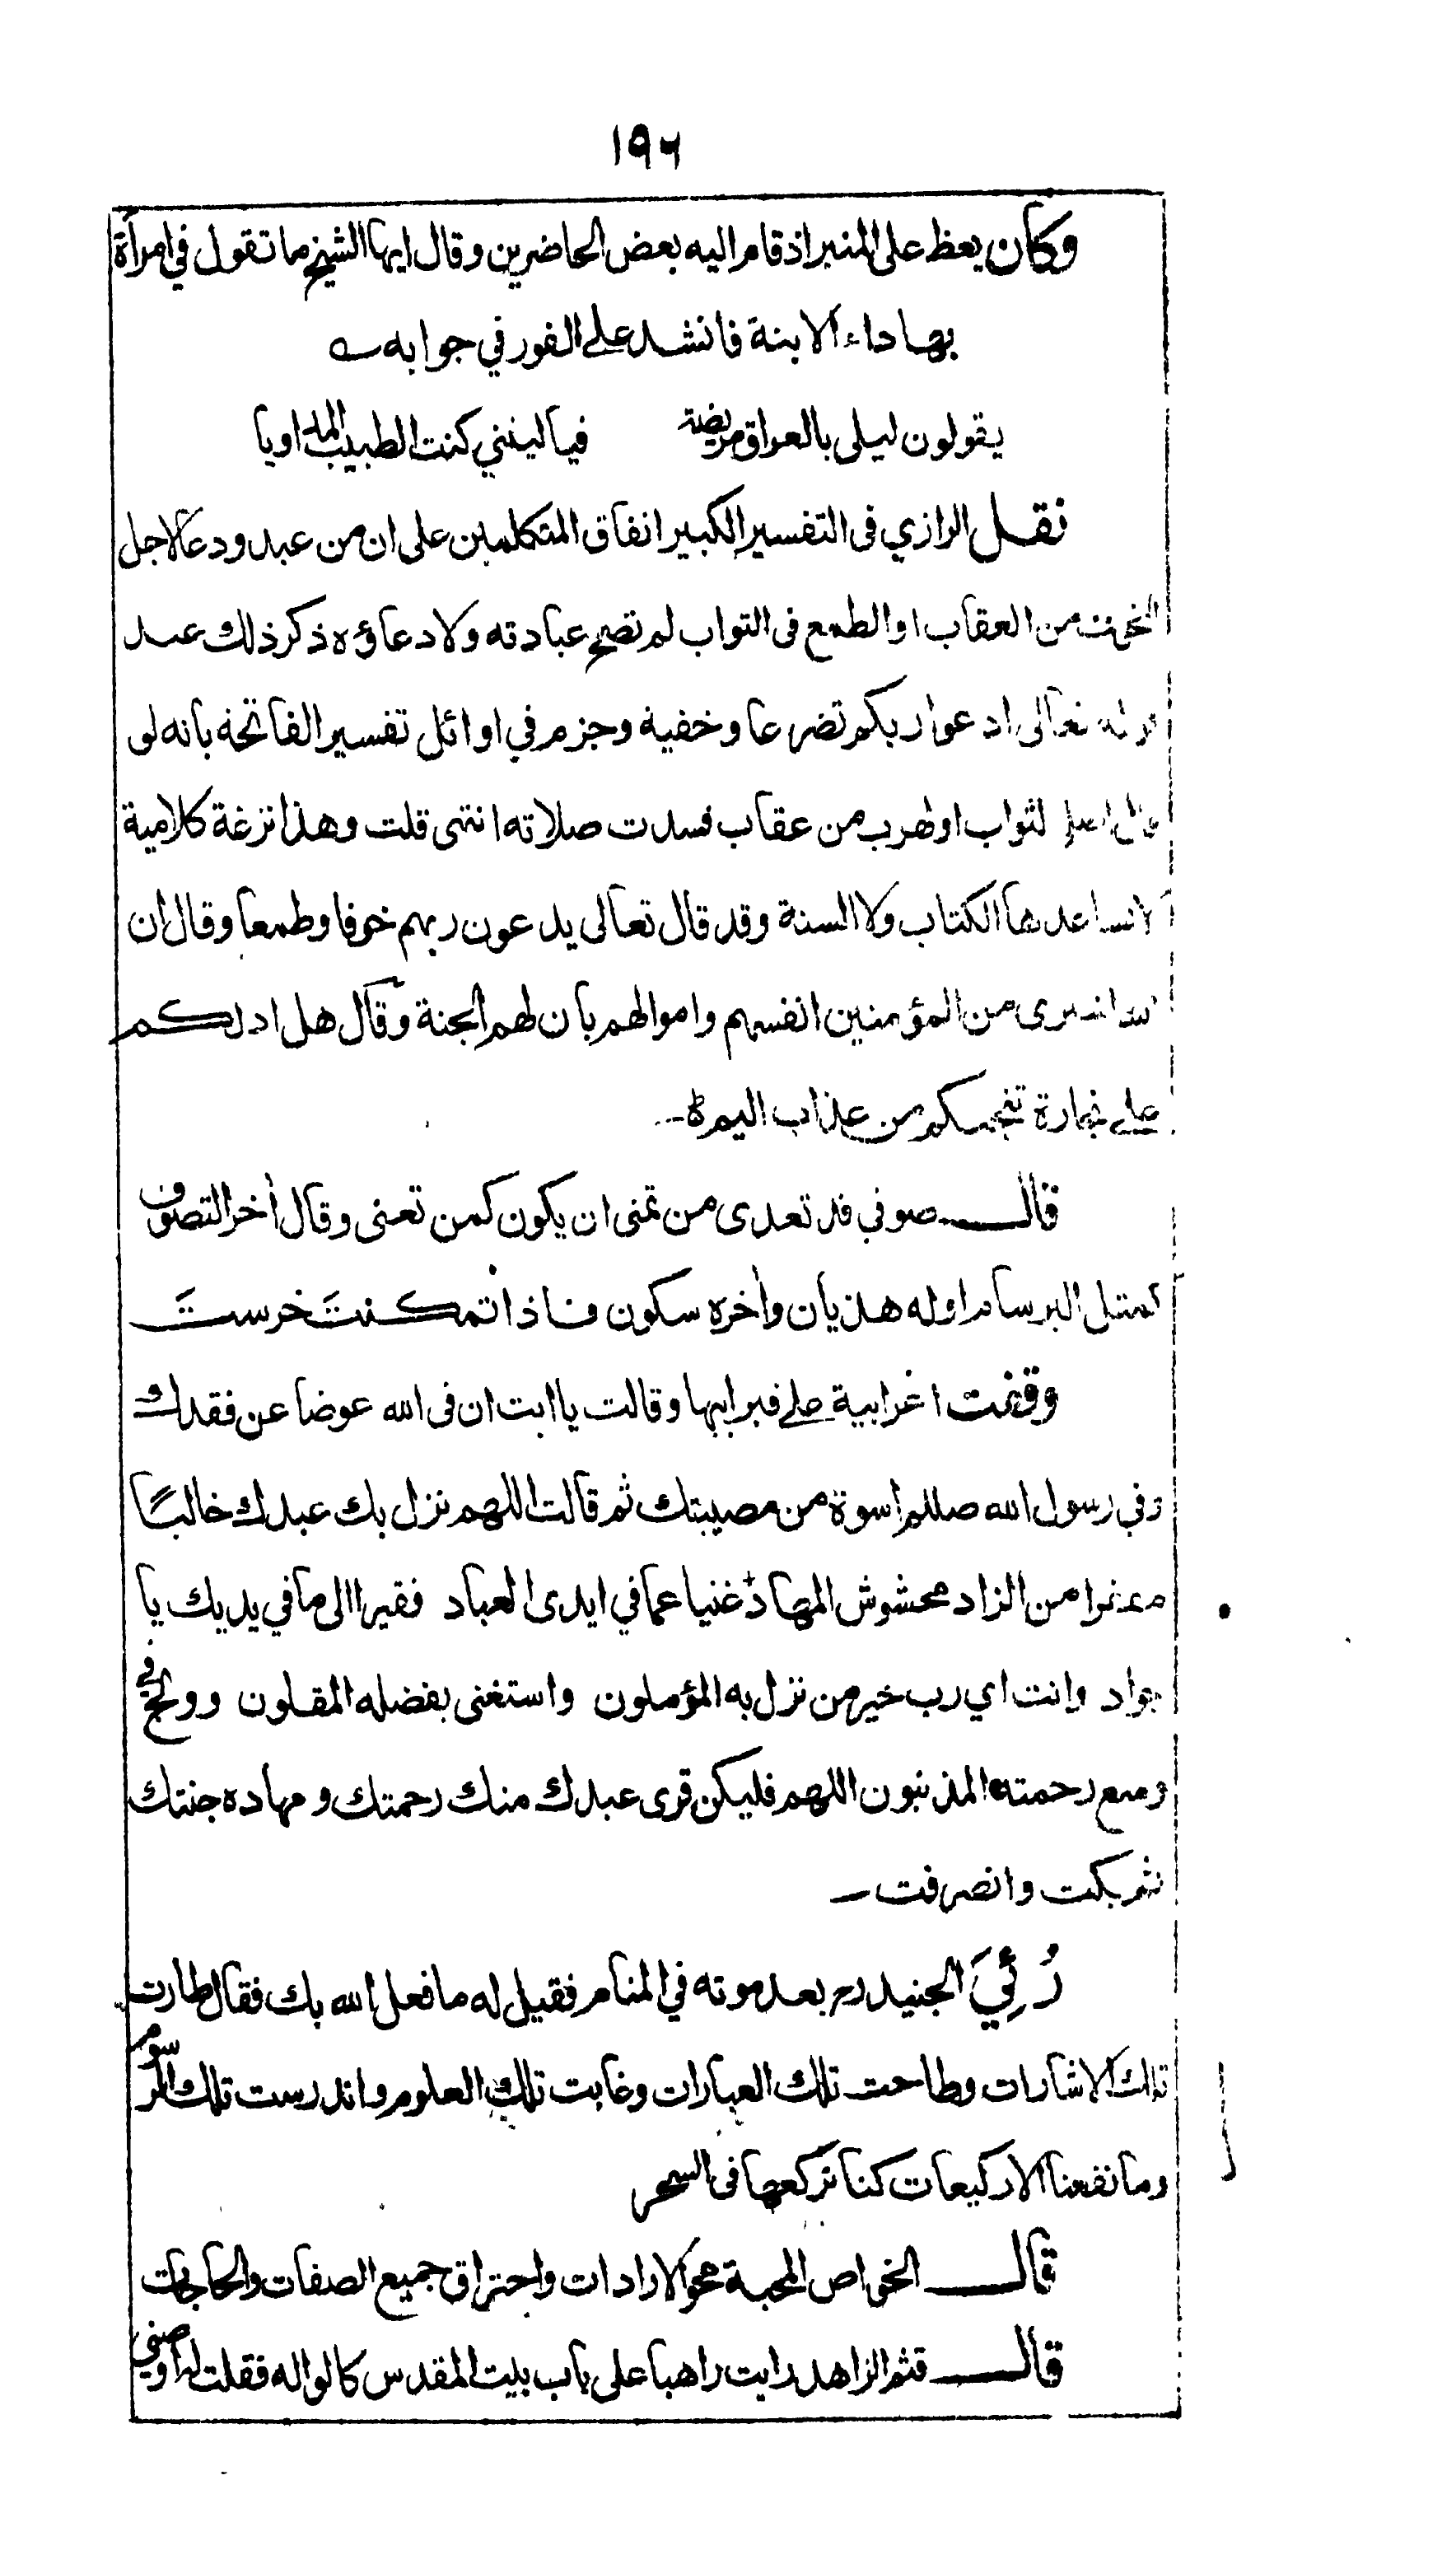 ١٩٦
وكان يعظ على المنبر اذ قام اليه بعض الحاضرين وقال ايها الشيخ ما تقول فى امرأة
بها داء الابنة فانشد على الفور في جوابه
يقولون ليلى بالعراق مريضة فيا ليتني كنت الطبيب المداويا
نقل الرازي فى التفسير الكبير اتفاق المتكلمين على ان من عبد ودعا لاجل
الخوف من العقاب او الطمع فى الثواب لم تصح عبادته ولا دعاؤه ذكر ذلك عند
قوله تعالى ادعوا ربكم تضرعا وخفية وجزم في اوائل تفسير الفاتحة بانه لو
لثواب او لهرب من عقاب فسدت صلاته انتهى قلت وهذا نزغة كلامية
لا تساعدها الكتاب ولا السنة وقد قال تعالى يدعون ربهم خوفا وطمعا وقال ان
الله اشترى من المؤمنين انفسهم واموالهم بان لهم الجنة وقال هل ادلكم
على تجارة تنجيكم من عذاب اليم
قال صوفي قد تعدى من تمنى ان يكون كمن تعنى وقال أخر التصوف
كمثل البرسام اوله هذيان وأخره سكون فاذا تمكنت خرست
وقفت اعرابية على قبر ابيها وقالت يا ابت ان فى الله عوضا عن فقدك
وفي رسول الله صللم اسوة من مصيبتك ثم قالت اللهم نزل بك عبدك خاليًا
من الزاد محشوش المهاد غنيا عما في ايدى العباد فقيرا الى ما في يديك يا
جواد وانت اي رب خير من نزل به المؤملون واستغنى بفضله المقلون وولج في
وسع رحمته المذنبون اللهم فليكن قرى عبدك منك رحمتك ومهاده جنتك
ثم بكت وانصرفت
رُئِيَ الجنيد رح بعد موته في المنام فقيل له ما فعل الله بك فقال طارت
تلك الاشارات وطاحت تلك العبارات وغابت تلك العلوم واندرست تلك الرسوم
وما نفعنا الا ركيعات كنا نركعها فى السحر
قال الخواص المحبة محو الارادات واحتراق جميع الصفات والحاجات
قال قثم الزاهد رايت راهبا على باب بيت المقدس كالواله فقلت له اوصني